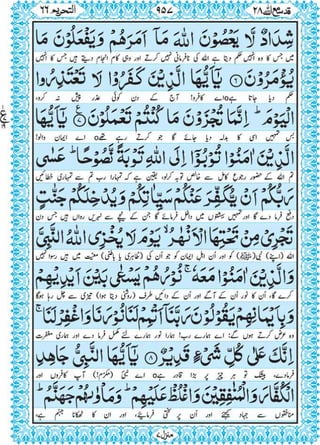 قد سمع الله ٢٨ ٩٥٧ التحریم ٦٦
شِدَادٌ لَّا يَعْصُوْنَ اللهَ مَآ اَمَرَهُمْ وَيَفْعَلُوْنَ مَا
اللہ کی نافرمانی نہیں کرتے اور وہی کام انجام دیتے ہیں جس کا انہیں
يُؤْمَرُوْنَ ۝٦ يٰۤاَيُّهَا الَّذِيْنَ كَفَرُوْا لَا تَعْتَذِرُوا
حکم دیا جاتا ہے۝ اے کافرو! آج کے دن کوئی عذر پیش نہ کرو
الْيَوْمَ ؕ اِنَّمَا تُجْزَوْنَ مَا كُنْتُمْ تَعْمَلُوْنَ ۝٧ يٰۤاَيُّهَا
بس تمہیں اسی کا بدلہ دیا جائے گا جو کرتے رہے تھے۝ اے ایمان والو!
الَّذِيْنَ اٰمَنُوْا تُوْبُوْۤا اِلَى اللهِ تَوْبَةً نَّصُوْحًا ؕ عَسٰى
تم اللہ کے حضور رجوعِ کامل سے خالص توبہ کر لو، یقین ہے کہ تمہارا رب تم سے تمہاری خطائیں
رَبُّكُمْ اَنْ يُّكَفِّرَ عَنْكُمْ سَيِّاٰتِكُمْ وَيُدْخِلَكُمْ جَنّٰتٍ
دفع فرما دے گا اور تمہیں بہشتوں میں داخل فرمائے گا جن کے نیچے سے نہریں رواں ہیں جس دن
تَجْرِيْ مِنْ تَحْتِهَا الْاَنْهٰرُ ۙ يَوْمَ لَا يُخْزِى اللهُ النَّبِيَّ
اللہ (اپنے) نبی (ﷺ) کو اور اُن اہلِ ایمان کو جو اُن کی (ظاہری یا باطنی) معیت میں ہیں رسوا نہیں
وَالَّذِيْنَ اٰمَنُوْا مَعَهٗ ۚ نُوْرُهُمْ يَسْعٰى بَيْنَ اَيْدِيْهِمْ
کرے گا، اُن کا نور اُن کے آگے اور اُن کے دائیں طرف (روشنی دیتا ہوا) تیزی سے چل رہا ہوگا
وَبِاَيْمَانِهِمْ يَقُوْلُوْنَ رَبَّنَاۤ اَتْمِمْ لَنَا نُوْرَنَا وَاغْفِرْ لَنَا ۚ
وہ عرض کرتے ہوں گے: اے ہمارے رب! ہمارا نور ہمارے لئے مکمل فرما دے اور ہماری مغفرت
اِنَّكَ عَلٰى كُلِّ شَيْءٍ قَدِيْرٌ ۝٨ يٰۤاَيُّهَا النَّبِيُّ جَاهِدِ
فرما دے، بیشک تو ہر چیز پر بڑا قادر ہے۝ اے نبی (مکرّم!) آپ کافروں اور
الْكُفَّارَ وَالْمُنٰفِقِيْنَ وَاغْلُظْ عَلَيْهِمْ ؕ وَمَاْوٰىهُمْ جَهَنَّمُ ؕ
منافقوں سے جہاد کیجئے اور اُن پر سختی فرمائیے، اور اُن کا ٹھکانا جہنم ہے،
منزل ٧